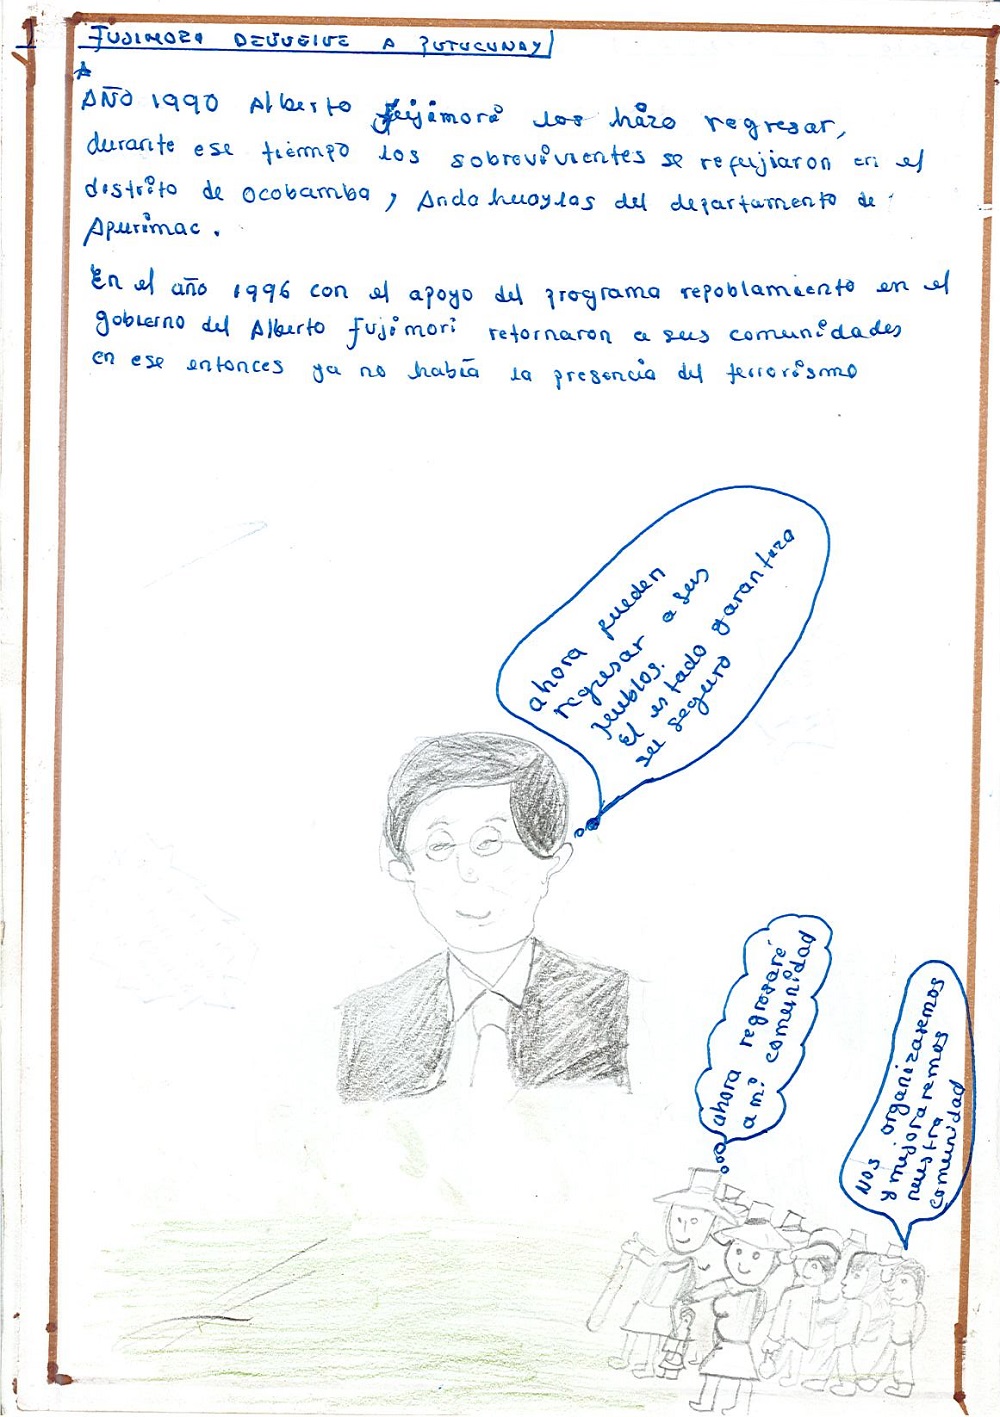 1
FUJIMORI DEVUELVE A PUTUCUNAY
A
AÑO 1990 Alberto Fujimori los hizo regresar,
durante ese tiempo los sobrevivientes se refujiaron en el
distrito de Ocobamba, Andahuaylas del departamento de
Apurimac.
En el año 1996 con el apoyo del programa repoblamiento en el
gobierno del Alberto Fujimori retornaron a sus comunidades
en ese entonces ya no había la presencia del terrorismo
ahora pueden
regresar a sus
pueblos.
El estado garantiza
su seguro
ahora regresaré
a mi comunidad
NOS organizaremos
y mejoraremos
nuestra
comunidad